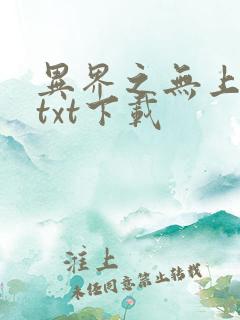 異界之無上
txt下載
淮上
未经同意禁止转载